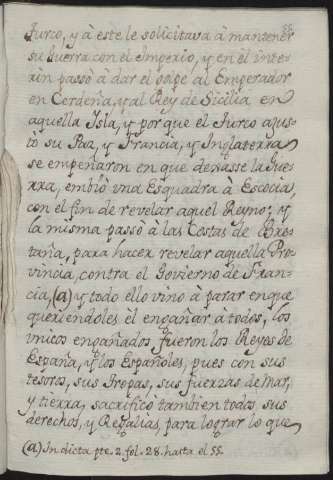 55
Turco, y à este le solicitava à mantener
su Guerra con el Imperio, y en el inte-
rin passò à dar el golpe al Emperador
en Cerdeña, y al Rey de Sicilia en
aquella Isla, y porque el Turco ajus-
tò su Paz, y Francia, y Inglaterra
se empeñaron en que dexasse la Gue-
rra, embiò una Esquadra à Escocia,
con el fin de revelar aquel Reyno; y
la misma passò à las Costas de Bre-
taña, para hacer revelar aquella Pro-
vincia, contra el Govierno de Fran-
cia, (a) y todo ello vino à parar en que
queriendoles èl engañar à todos, los
unicos engañados fueron los Reyes de
España, y los Españoles, pues con sus
tesoros, sus tropas, sus fuerzas de mar,
y tierra, sacrificò tambien todos sus
derechos, y Regalias, para lograr lo que
(a) In dicta pte. 2. fol. 28. hasta el 55.